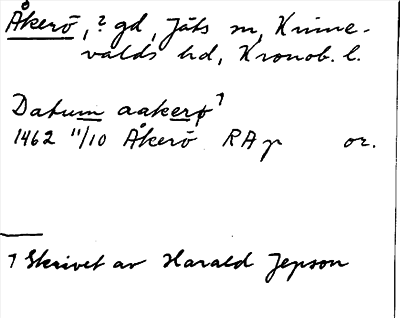 Åkerö, ? gd, Jäts sn, Kinne-
valds hd, Kronob. l.
Datum aakerø ⁊
1462 11/10 Åkerö RAp or.
⁊ Skrivet av Harald Jepson